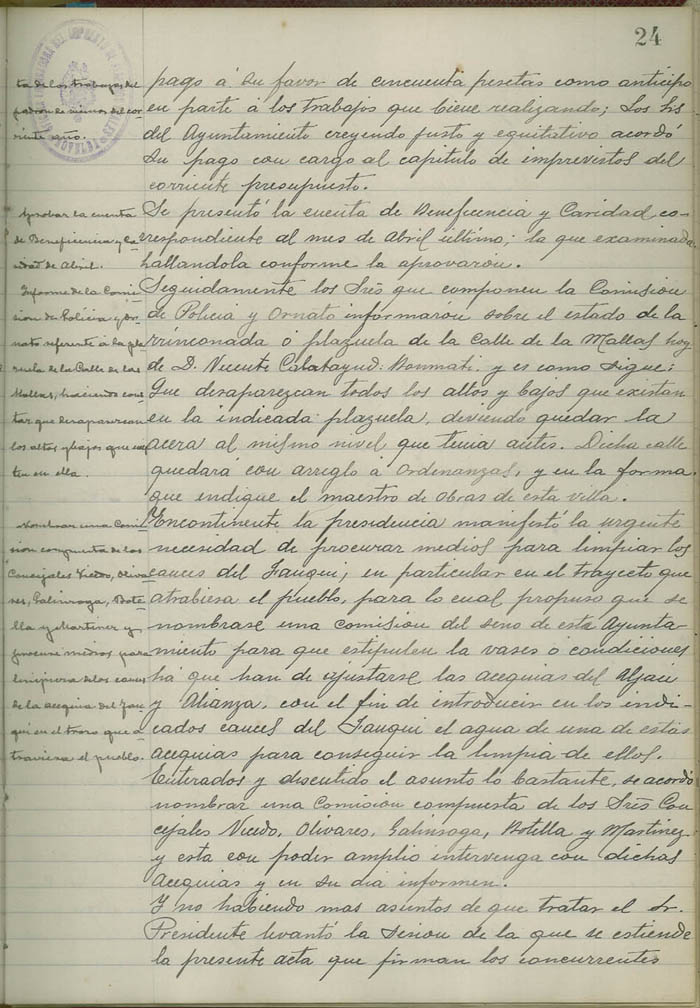 24
ta de los trabajos del
padron de cedulas del cor
riente año.
pago á su favor de cincuenta pesetas como anticipo
en parte á los trabajos que biene realizando; Los Srs
del Ayuntamiento creyendo justo y equitativo acordó
su pago con cargo al capitulo de imprevistos del
corriente presupuesto.
Aprobar la cuenta
de Beneficencia y Ca
ridad de Abril.
Se presentó la cuenta de Beneficencia y Caridad co-
rrespondiente al mes de Abril último; la que examinada
hallandola conforme la aprovaron.
Informe de la Comi
sion de Policia y Or
nato referente á la pla
zuela de la Calle de las
Mallas, haciendo cons
tar que desaparezcan
los altos y bajos que exis
ten en ella.
Seguidamente los Sres que componen la Comision
de Policia y Ornato informaron sobre el estado de la
rrinconada ó plazuela de la Calle de la Mallas hoy
de D. Vicente Calatayud Bonmati y es como sigue:
Que desaparezcan todos los altos y bajos que existan
en la indicada plazuela, deviendo quedar la
acera al mismo nivel que tenia antes. Dicha calle
quedará con arreglo á Ordenanzas, y en la forma
que indique el maestro de obras de esta villa.
Nombrar una Comi
sion compuesta de los
Concejales Vicedo, Oliva
res, Galinsoga, Bote
lla y Martinez y
procure medios para
limpieza de los cauces
de la acequia del Fau
qui en el trozo que a
traviesa el pueblo.
Encontinente la presidencia manifestó la urgente
necesidad de procurar medios para limpiar los
cauces del Fauqui, en particular en el trayecto que
atrabiesa el pueblo, para lo cual propuso que se
nombrase una comision del seno de este Ayunta-
miento para que estipulen la vases ó condiciones
há que han de ajustarse las acequias del Aljau
y Alianza, con el fin de introducir en los indi-
cados cauces del Fauqui el agua de una de estas
acequias para conseguir la limpia de ellos.
Enterados y discutido el asunto lo bastante, se acordó
nombrar una Comision compuesta de los Sres Con
cejales Vicedo, Olivares, Galinsoga, Botella y Martinez
y esta con poder amplio intervenga con dichas
Acequias y en su dia informen.
Y no habiendo mas asuntos de que tratar el Sr.
Presidente levantó la sesion de la que se estiende
la presente acta que firman los concurrentes